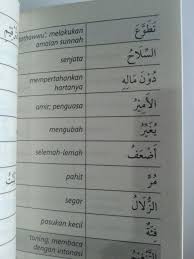 tathawwu', melakukan
amalan sunnah
تَطَوَّعَ
senjata
السِّلَاحُ
mempertahankan
hartanya
دُوْنَ مَالِهِ
amir, penguasa
الأَمِيْرُ
mengubah
يُغَيِّرُ
selemah-lemah
أَضْعَفُ
pahit
مُرٌّ
segar
الزُّلَالُ
pasukan kecil
فِئَةٌ
membaca
dengan intonasi